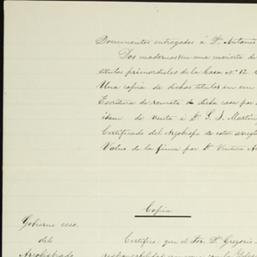 Documentos entregados á D. Antonio
Dos cuadernos en una
titulos primordiales de la Casa Nº 12.
Una copia de dichos titulos en un
Escritura de remate de dicha casa por
idem de venta á D. G. S. Martin
Certificado del Arzobispo de
Valor de la finca por D. Ventura
Copia
Gobierno ecco.
del
Arzobispado
Certifico, que el Sor. D. Gregorio
responsabilidad